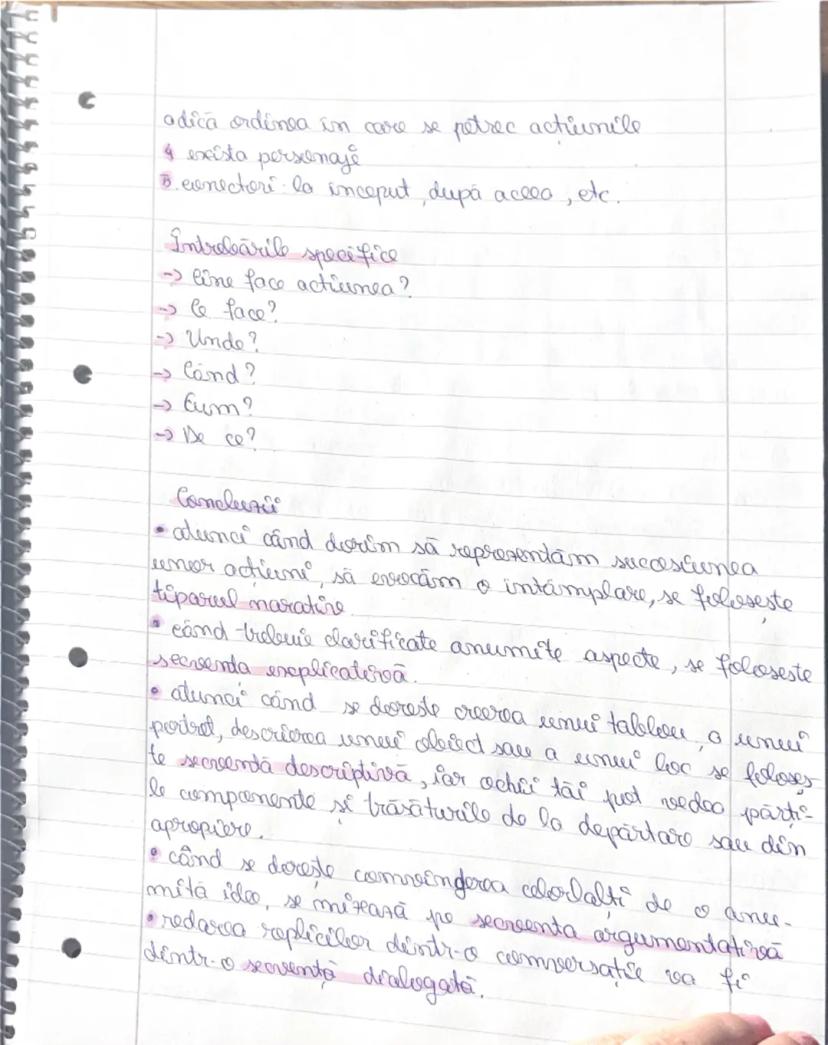 adică ordinea în care se petrec acțiunile
4 exista personaje
5. conectori: la inceput, după aceea, etc.
Întrebările specifice
→ Cine face actiunea?
→ Ce face?
→ Unde?
→ Când?
→ Cum?
→ De ce?
Concluzii
• atunci când dorim să reprezentăm succesiunea
unor acțiuni, să evocăm o întâmplare, se folosește
tiparul narativ.
• când trebuie clarificate anumite aspecte, se foloseste
secvenda explicativă.
• atunci când se dorește crearea unui tablou, a unui
portret, descrierea unui obiect sau a unui loc se foloseș
te secvență descriptivă, iar ochii tăi pot vedea părți-
le componente și trăsăturile de la depărtare sau din
apropiere.
• când se dorește convingerea celorlalți de o anu-
mită idee, se mizează pe secvența argumentativă
• redarea replicilor dintr-o conversație va fi
dintr-o secvență dialogată.